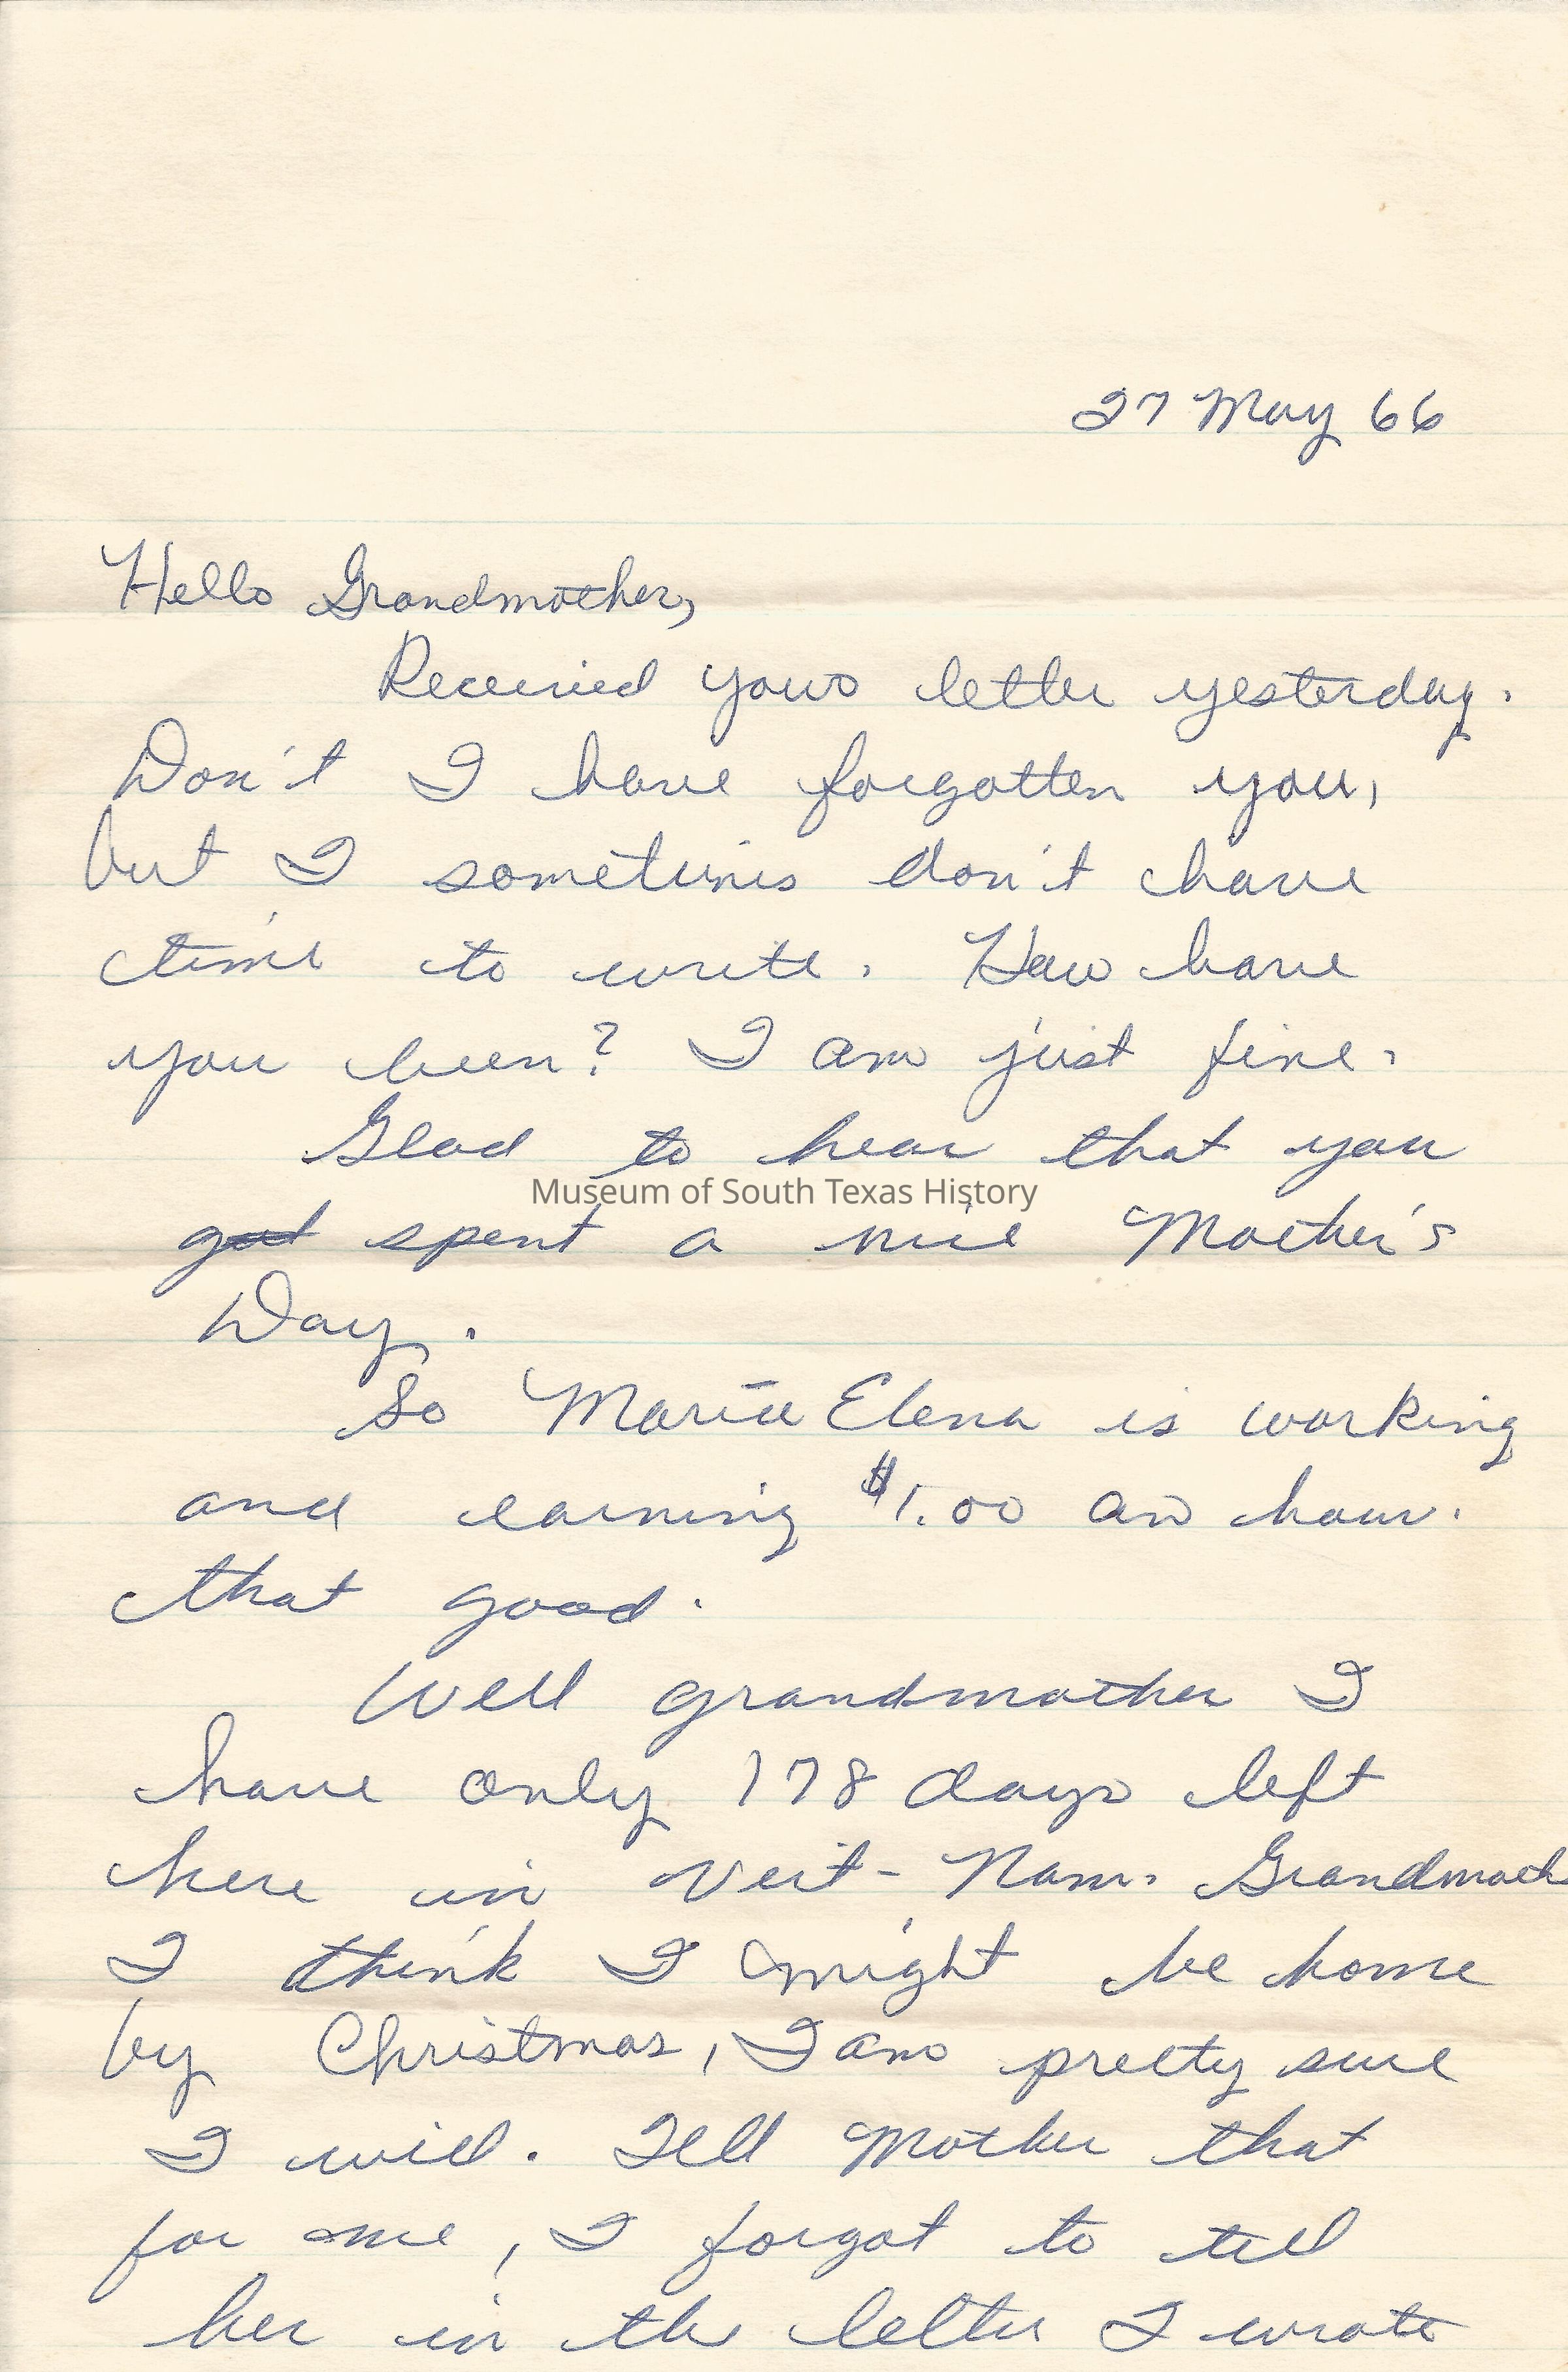 27 May 66
Hello Grandmother,
Received your letter yesterday.
Don't I have forgotten you,
but I sometimes don't have
time to write. How have
you been? I am just fine.
Glad to hear that you
Museum of South Texas History
got spent a nice Mother's
Day.
So Maria Elena is working
and earning $1.00 an hour.
that good.
Well grandmother I
have only 178 days left
here in Veit-Nam. Grandmoth
I think I might be home
by Christmas, I am pretty sure
I will. Tell Mother that
for me, I forgot to tell
her in the letter I wrote